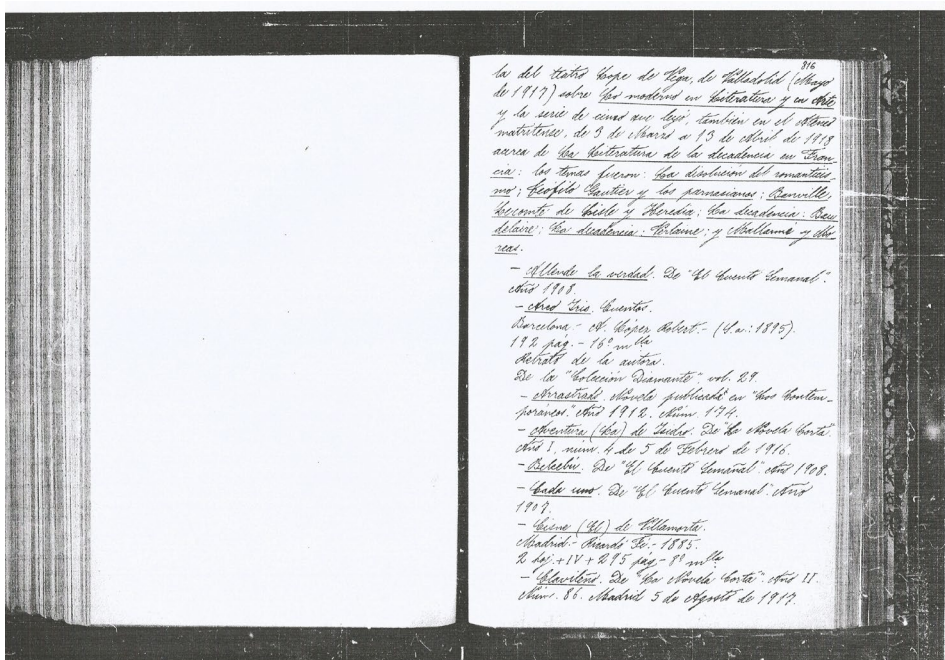 816
la del teatro Lope de Vega, de Valladolid (Mayo
de 1917) sobre Lo moderno en Literatura y en Arte
y la serie de cinco que leyó, también en el Ateneo
matritense, de 3 de Marzo a 13 de Abril de 1918
acerca de La Literatura de la decadencia en Fran-
cia: los temas fueron: La disolución del romanticis-
mo; Teófilo Gautier y los parnasianos; Banville,
Leconte de Lisle y Heredia; La decadencia: Bau
delaire; La decadencia: Verlaine; y Mallarmé y Mo-
reas.
- Allende la verdad. De "El Cuento Semanal".
Año 1908.
- Arco Iris. Cuentos.
Barcelona - A. López Robert. - (S.a.: 1895).
192 pág. - 16º mlla
Retrato de la autora.
De la "Colección Diamante". vol. 29.
- Arrastrado. Novela publicada en "Los Contem-
poráneos". Año 1912. Núm. 174.
- Aventura (La) de Isidro. De "La Novela Corta".
Año I, núm. 4 de 5 de Febrero de 1916.
- Belcebú. De "El Cuento Semanal". Año 1908.
- Cada uno. De "El Cuento Semanal". Año
1907.
- Cisne (El) de Villamorta.
Madrid - Ricardo Fé - 1885.
2 hoj. + IV + 295 pág - 8º mlla
- Clavileño. De "La Novela Corta". Año II.
Núm. 86. Madrid 5 de Agosto de 1917.